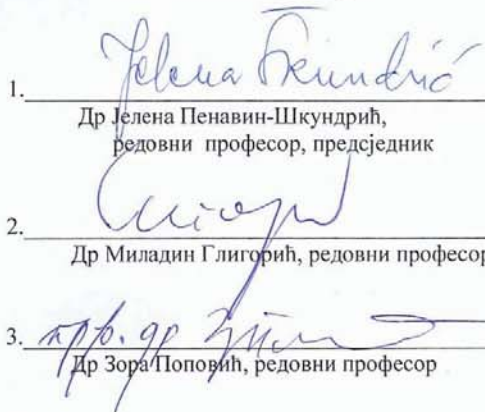 Jelena Škundrić
1.
Др Јелена Пенавин-Шкундрић,
редовни професор, предсједник
2.
Др Миладин Глигорић, редовни професор
3. проф. др
Др Зора Поповић, редовни професор